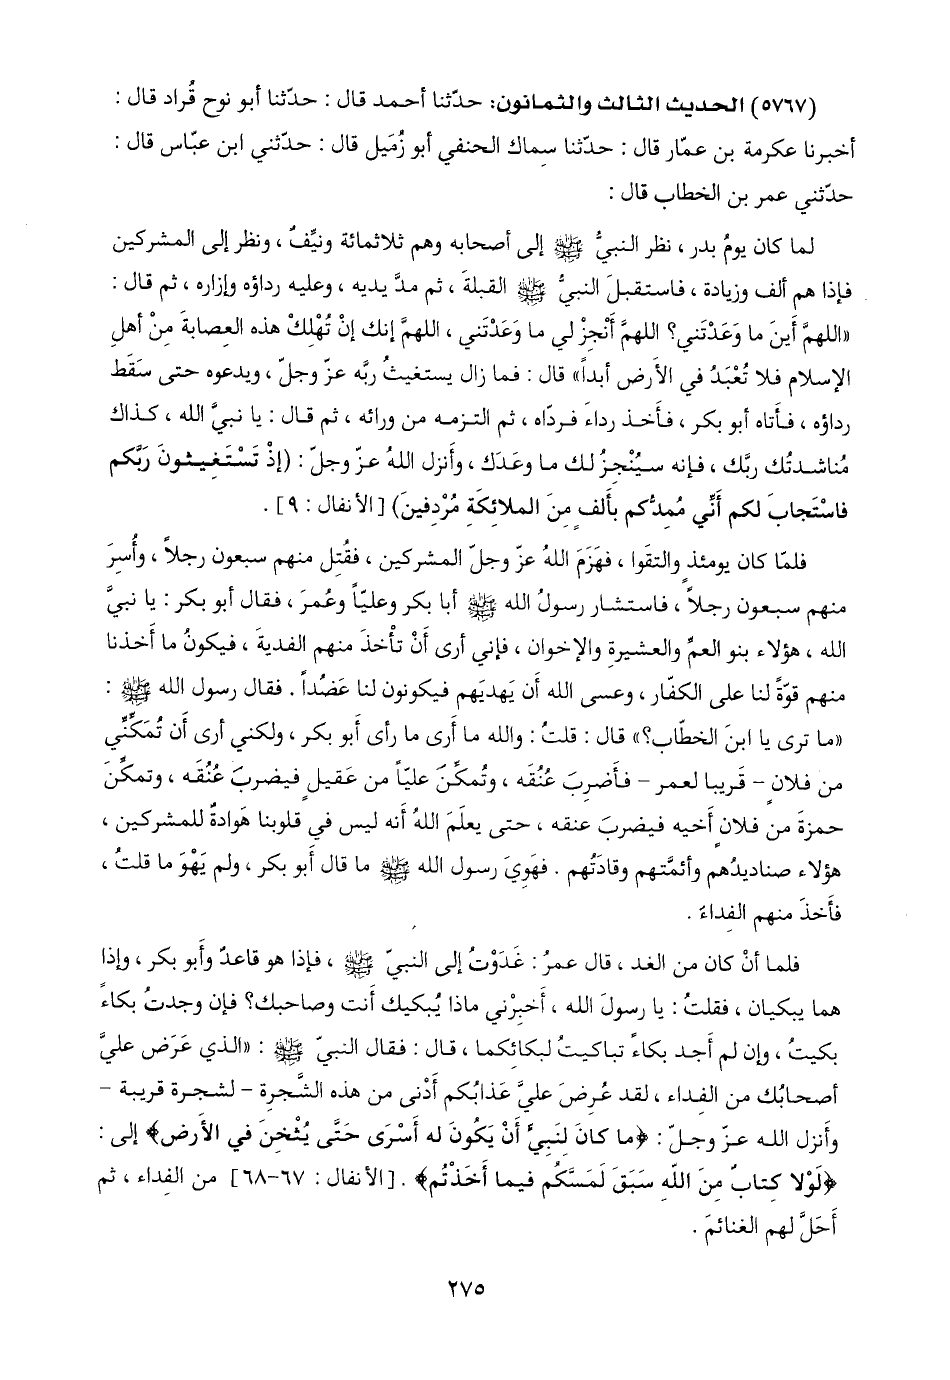 (٥٧٦٧) الحديث الثالث والثمانون: حدّثنا أحمد قال : حدّثنا أبو نوح قُراد قال :
أخبرنا عكرمة بن عمّار قال : حدّثنا سماك الحنفي أبو زُمَيل قال : حدّثني ابن عبّاس قال :
حدّثني عمر بن الخطاب قال :
لما كان يومُ بدر ، نظر النبيُّ ﷺ إلى أصحابه وهم ثلاثمائة ونيِّفٌ ، ونظر إلى المشركين
فإذا هم ألف وزيادة ، فاستقبلَ النبيُّ ﷺ القبلةَ ، ثم مدَّ يديه ، وعليه رداؤه وإزاره ، ثم قال :
«اللهمَّ أينَ ما وَعَدْتَني؟ اللهمَّ أَنْجِزْ لي ما وَعَدْتَني ، اللهمَّ إنك إنْ تُهْلِكْ هذه العصابةَ مِنْ أهلِ
الإسلام فلا تُعْبَدُ في الأرض أبداً» قال : فما زال يستغيثُ ربَّه عزّ وجلّ ، ويدعوه حتى سَقَط
رداؤه ، فأتاه أبو بكر ، فأخذ رداءَ فردّاه ، ثم التزمه من ورائه ، ثم قال : يا نبيَّ الله ، كذاك
مُناشدتُك ربَّك ، فإنه سيُنْجِزُ لك ما وعَدَك ، وأنزل اللهُ عزّ وجلّ : (إذْ تَسْتَغيثونَ رَبَّكم
فاسْتَجابَ لكم أَنِّي مُمِدُّكم بأَلفٍ مِنَ الملائِكَةِ مُرْدِفينَ) [الأنفال : ٩] .
فلمّا كان يومئذٍ والتقَوا ، فهَزَمَ اللهُ عزّ وجلّ المشركين ، فقُتِل منهم سبعون رجلاً ، وأُسِرَ
منهم سبعون رجلاً ، فاستشار رسولُ الله ﷺ أبا بكر وعليّاً وعُمرَ ، فقال أبو بكر : يا نبيَّ
الله ، هؤلاء بنو العمِّ والعشيرةِ والإخوان ، فإني أرى أنْ تأْخذَ منهم الفديةَ ، فيكونُ ما أَخذنا
منهم قوّةً لنا على الكفّار ، وعسى الله أن يَهديَهم فيكونون لنا عَضُداً . فقال رسول الله ﷺ :
«ما ترى يا ابنَ الخطّاب؟» قال : قلتُ : والله ما أَرى ما رأى أبو بكر ، ولكني أرى أَن تُمَكِّنِّي
من فلانٍ - قريبا لعمر - فأَضرِبَ عنُقَه ، وتُمكِّنَ عليّاً من عَقيلٍ فيضربَ عُنُقَه ، وتمكِّنَ
حمزةَ من فلان أخيه فيضربَ عنقه ، حتى يعلَمَ اللهُ أنه ليس في قلوبنا هَوادةٌ للمشركين ،
هؤلاء صناديدُهم وأئمَّتهم وقادَتُهم . فهَوِيَ رسول الله ﷺ ما قال أَبو بكر ، ولم يَهْوَ ما قلتُ ،
فأَخذَ منهم الفِداءَ .
فلما أنْ كان من الغد ، قال عمرُ : غَدَوْتُ إلى النبيّ ﷺ ، فإذا هو قاعدٌ وأَبو بكر ، وإذا
هما يبكيان ، فقلتُ : يا رسولَ الله ، أَخبِرْني ماذا يُبكيك أَنت وصاحبك؟ فإن وجدتُ بكاءً
بكيتُ ، وإن لم أجد بكاءً تباكيتُ لبكائكما ، قال : فقال النبيّ ﷺ : «الذي عَرَض عليَّ
أصحابُك من الفداء ، لقد عُرِضَ عليَّ عَذابُكم أَدْنى من هذه الشَّجرةِ - لشجرة قريبة -
وأنزل الله عزّ وجلّ : ﴿ما كانَ لِنَبيٍّ أَنْ يَكُونَ له أَسْرَى حَتَّى يُثْخِنَ في الأرض﴾ إلى :
﴿لَوْلا كِتابٌ مِنَ اللهِ سَبَقَ لَمَسَّكُم فيما أَخَذْتُم﴾ . [الأنفال : ٦٧-٦٨] من الفداء ، ثم
أَحَلَّ لهم الغنائمَ .
٢٧٥